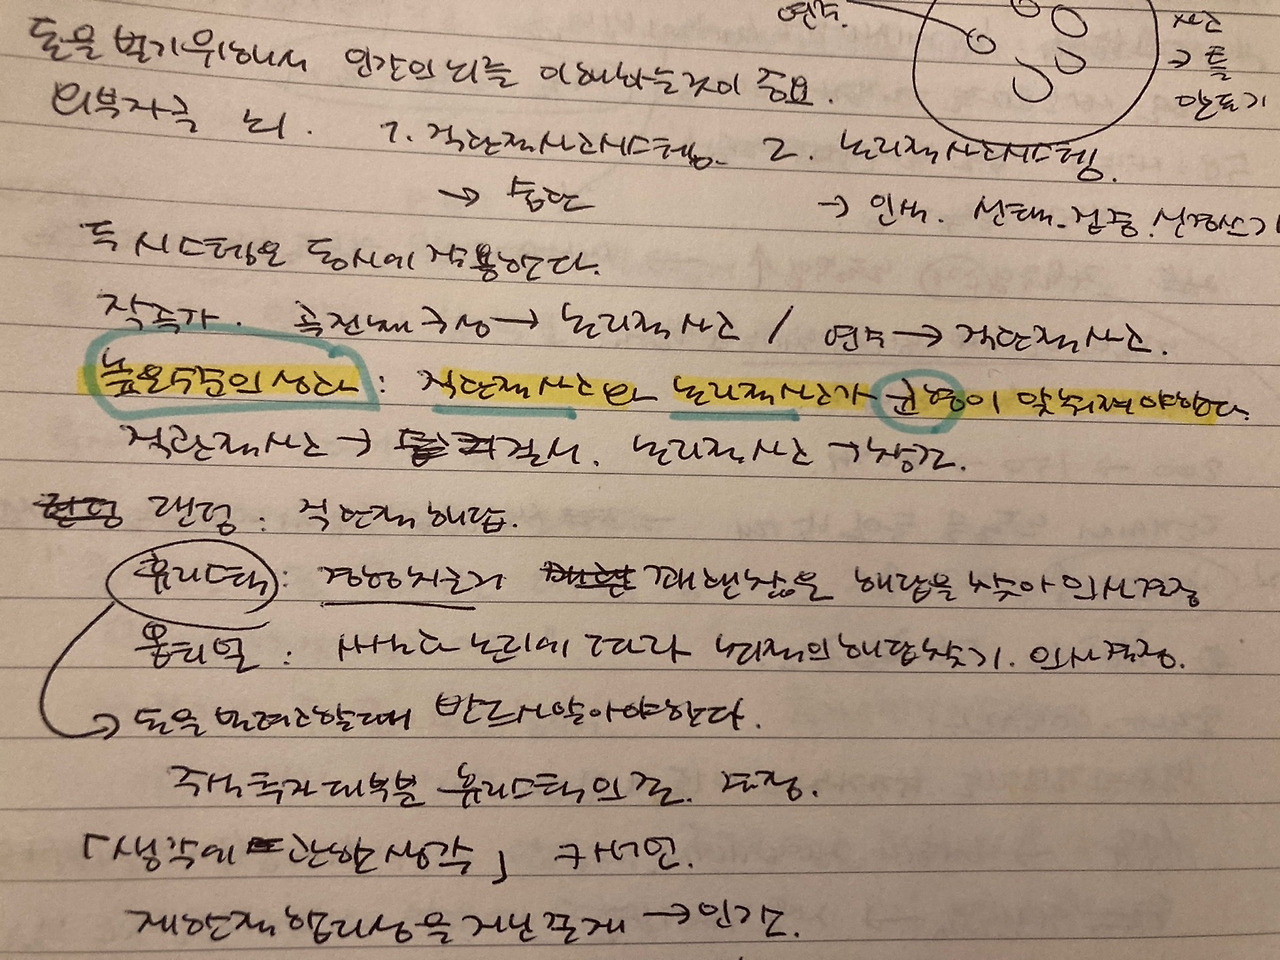 연주.
사고
→ 틀
만들기
돈을 벌기위해서 인간의 뇌를 이해하는것이 중요.
외부자극 뇌. 1. 직관적사고시스템. 2. 논리적사고시스템.
→ 습관 → 인식. 선택. 집중! 신경쓰기
두 시스템은 동시에 작용한다.
작곡가. 곡전체구상 → 논리적사고 / 연주 → 직관적사고.
높은수준의 성과 : 직관적사고와 논리적사고가 균형이 맞춰져야한다.
직관적사고 → 결시. 논리적사고 →
랜덤 : 직관적해답.
휴리스틱 : 경험치근거 꽤괜찮을 해답을 찾아 의사결정
옵티멀 : 논리에 따라 최적의해답찾기. 의사결정.
→ 돈을 벌려고할때 반드시알아야한다.
주식투자대부분 휴리스틱의존.
「생각에 관한생각」 카너먼.
제한적합리성을 지닌존재 → 인간.